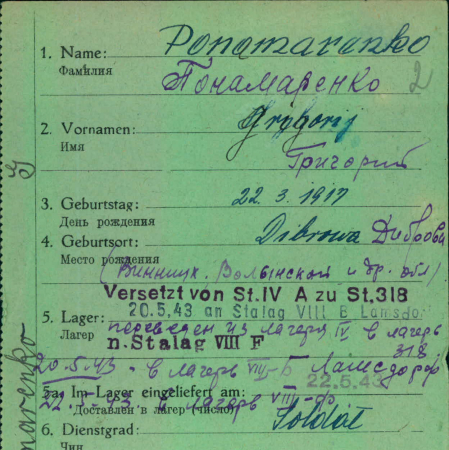 1. Name: Ponomarenko
Фамилия Понамаренко 2
2. Vornamen: Grygorij
Имя Григорий
3. Geburtstag: 22.3.1917
День рождения
4. Geburtsort: Dibrowa Диброва
Место рождения
(Винницк., Волынской и др. обл)
Versetzt von St. IV A zu St. 318
20.5.43 an Stalag VIII B Lamsdorf
5. Lager:
Лагерь переведен из лагеря IV в лагерь
318
n. Stalag VIII F
20.5.43 - в лагерь VIII-Б Ламсдорф
22.5.43
5a. Im Lager eingeliefert am:
22.5.43 в лагерь VIII-ф
Доставлен в лагерь (число)
6. Dienstgrad: Soldat
Чин